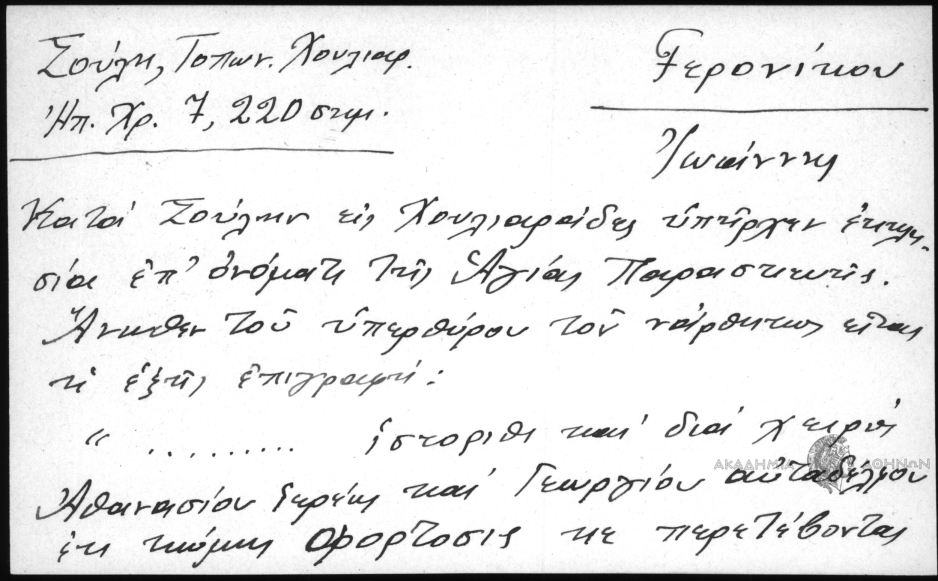 Σούλη, Τοπων. Χουλιαρ.
Ἠπ. Χρ. 7, 220 σημ.
Ἱερονίκου
Ἰωάννης
Κατά Σούλην εἰς Χουλιαράδες ὑπῆρχεν ἐκκλη-
σία ἐπ' ὀνόματι τῆς Ἁγίας Παρασκευῆς.
Ἄνωθεν τοῦ ὑπερθύρου τοῦ νάρθηκος εἶναι
ἡ ἑξῆς ἐπιγραφή:
" ......... ἱστορίθι καί διά χειρός
Ἀθανασίου ἱερέως καί Γεωργίου αὐταδέλφου
ἐκ κώμης Φορτόσις κε περετέβοντας
ΑΚΑΔΗΜΙΑ ΑΘΗΝΩΝ